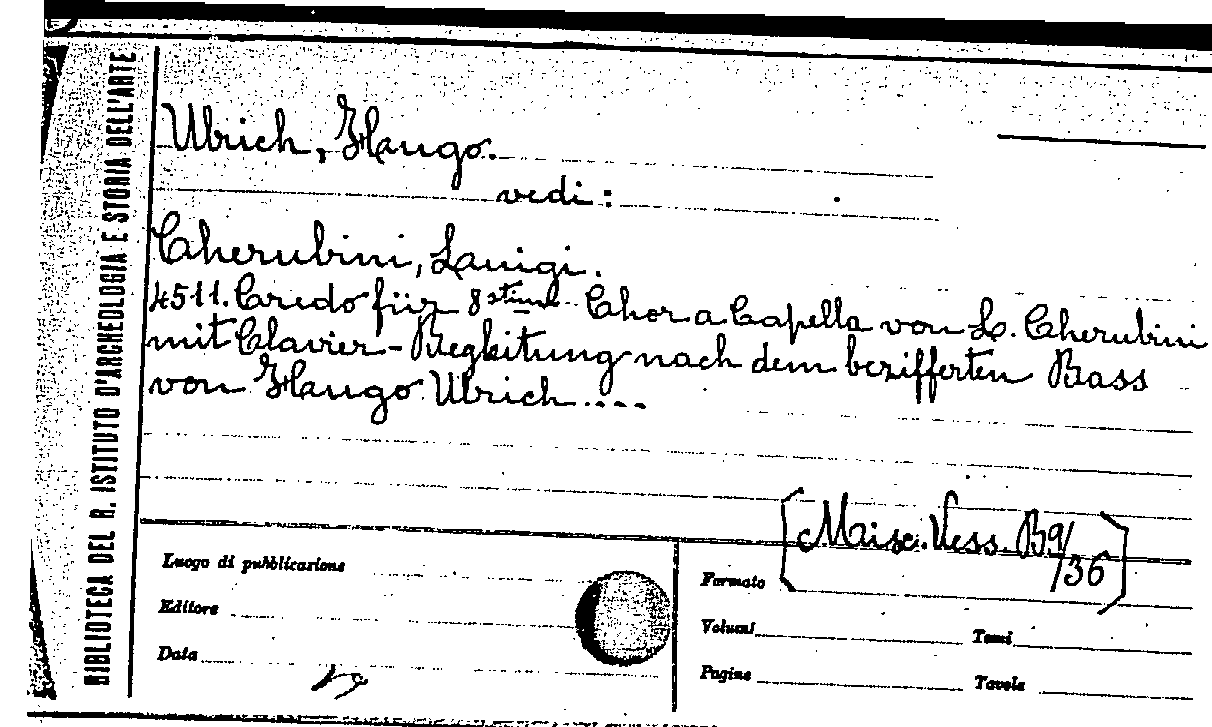 BIBLIOTECA DEL R. ISTITUTO D'ARCHEOLOGIA E STORIA DELL'ARTE
Ulrich, Haugo.
vedi:
Cherubini, Luigi.
4511. Credo für 8stim. Chor a Capella von L. Cherubini
mit Clavier-Begleitung nach dem bezifferten Bass
von Haugo Ulrich....
[Misc. Vess. B9/36]
Luogo di pubblicazione
Editore
Data
Formato
Volumi Tomi
Pagine Tavole